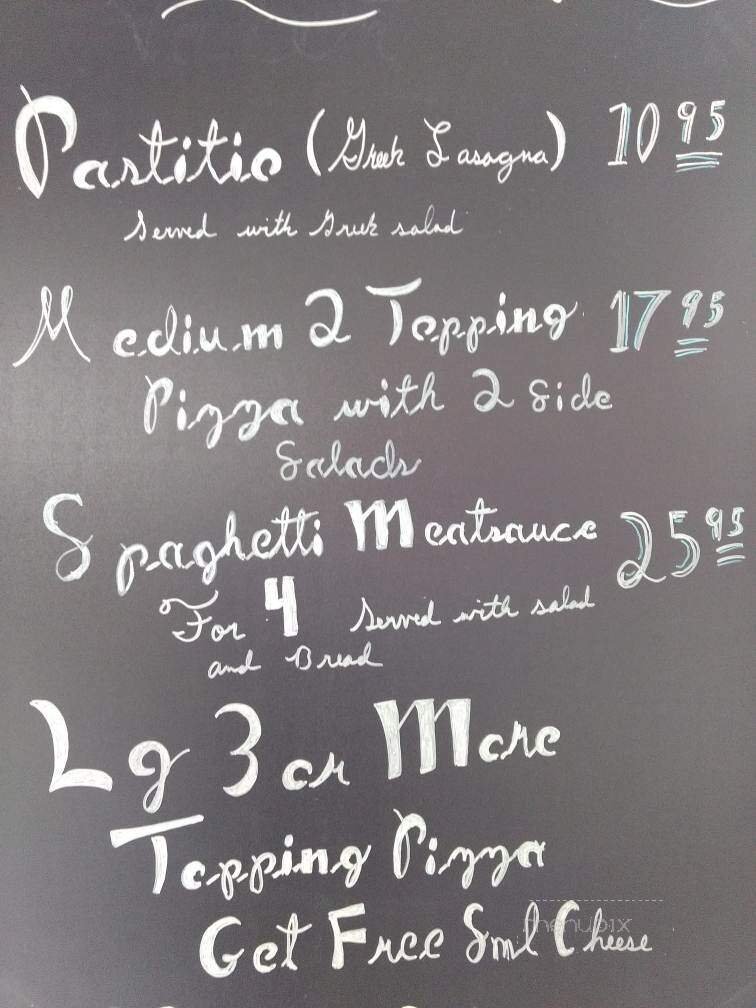 Pastitio (Greek Lasagna) 10 95
Served with Greek salad
Medium 2 Topping 17 95
Pizza with 2 Side
Salads
Spaghetti Meatsauce 25 95
For 4 Served with salad
and Bread
Lg 3 or More
Topping Pizza
Get Free Sml Cheese
menupix